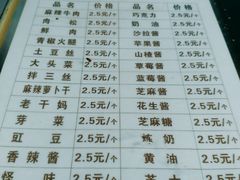 品名 价格 品名 价格
麻辣牛肉 2.5元/个 巧克力 2.5元/个
肉松 2.5元/个 奶油 2.5元/个
鲜肉 2.5元/个 沙拉酱 2.5元/个
青椒火腿 2.5元/个 苹果酱 2.5元/个
土豆丝 2.5元/个 山楂酱 2.5元/个
大头菜 2.5元/个 草莓酱 2.5元/个
拌三丝 2.5元/个 蓝莓酱 2.5元/个
麻辣萝卜干 2.5元/个 芝麻酱 2.5元/个
老干妈 2.5元/个 花生酱 2.5元/个
芽菜 2.5元/个 芝麻糖 2.5元/个
豇豆 2.5元/个 炼奶 2.5元/个
香辣酱 2.5元/个 黄油 2.5元/个
怪味 2.5元/个 芝士 2.5元/个